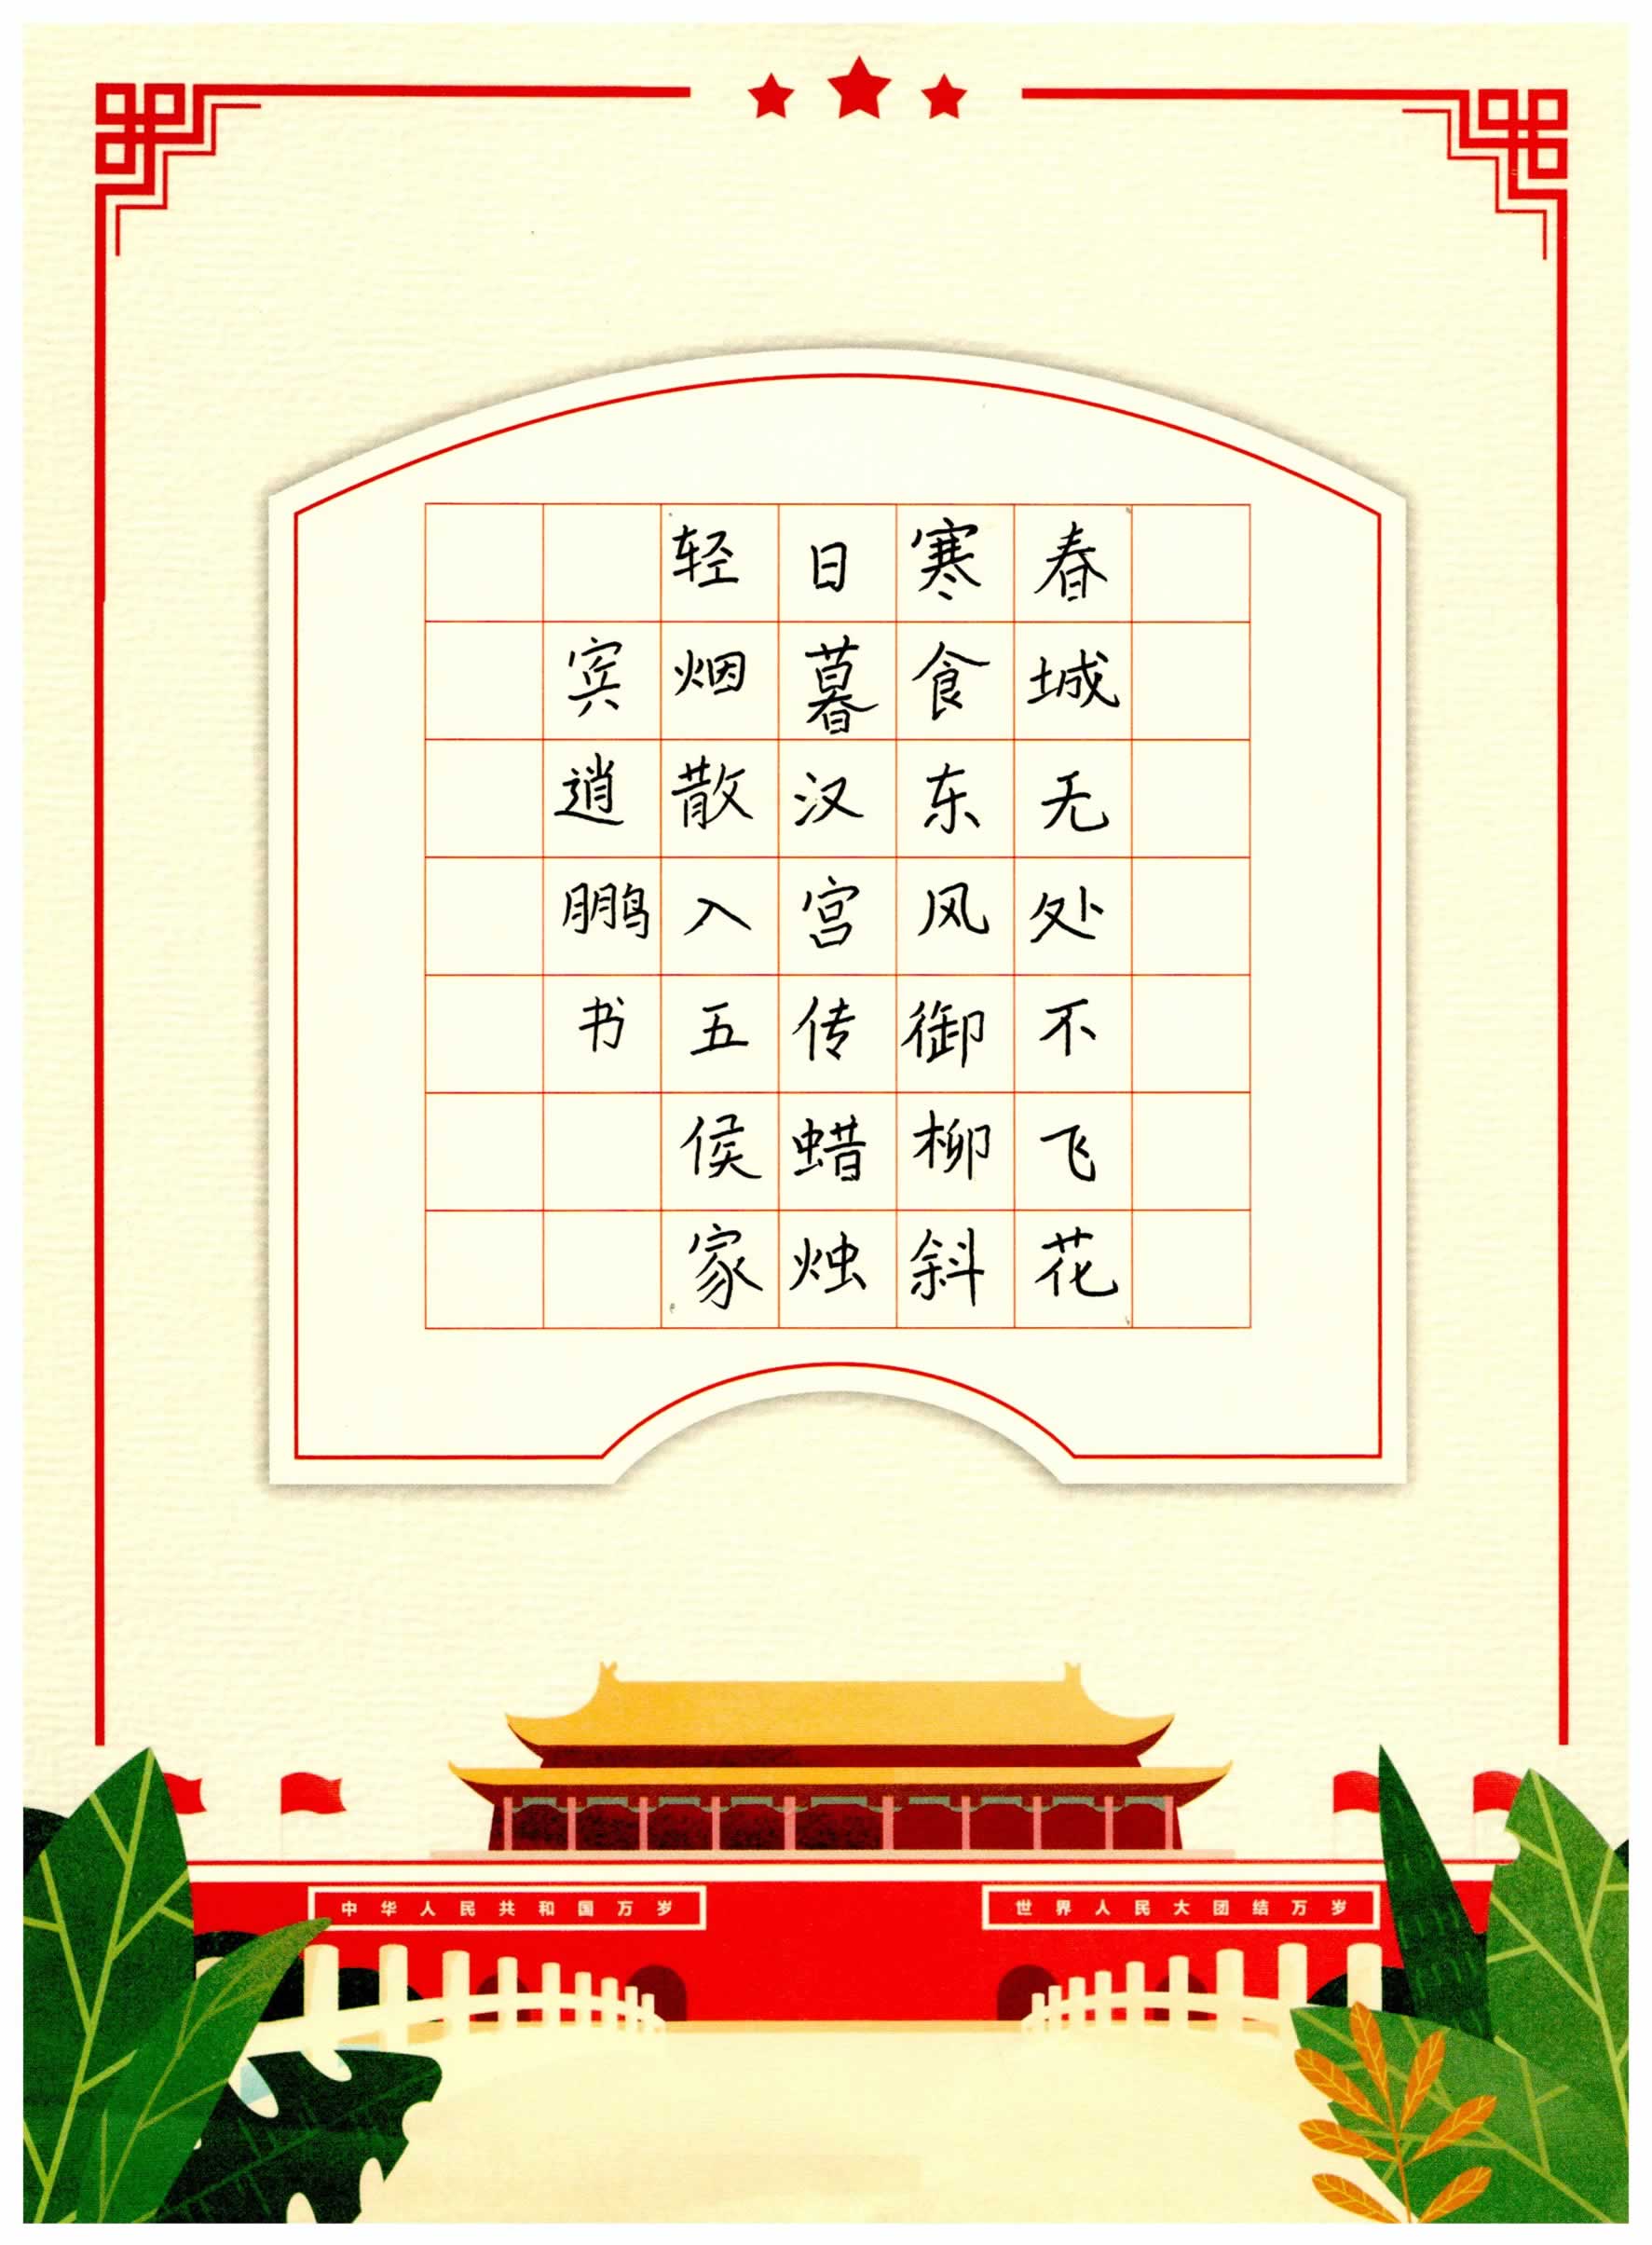 春城无处不飞花
寒食东风御柳斜
日暮汉宫传蜡烛
轻烟散入五侯家
宾逍鹏书
中华人民共和国万岁
世界人民大团结万岁